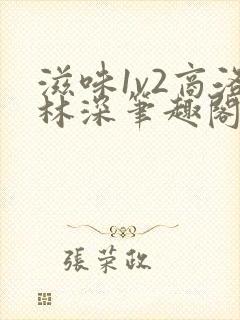 滋味1v2高洛
林深笔趣阁
張荣政